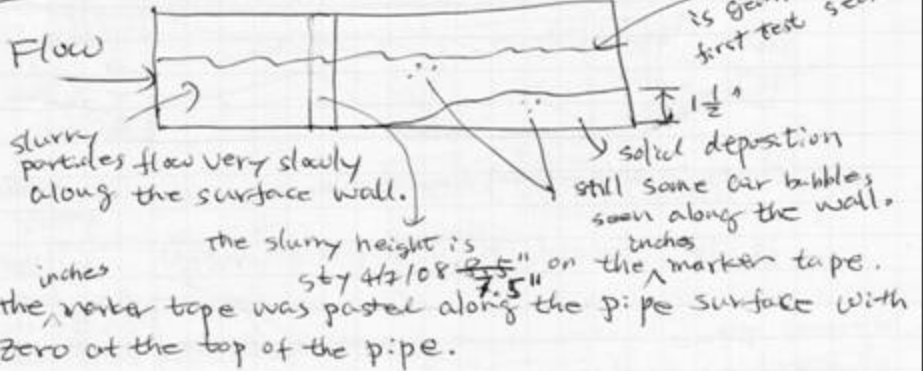 Flow
is
first test
1½"
slurry
particles flow very slowly
along the surface wall.
solid deposition
still some air bubbles
seen along the wall.
the slurry height is
sty 4/7/08 8.5" on the inches marker tape.
7.5"
inches
the marker tape was pasted along the pipe surface with
zero at the top of the pipe.